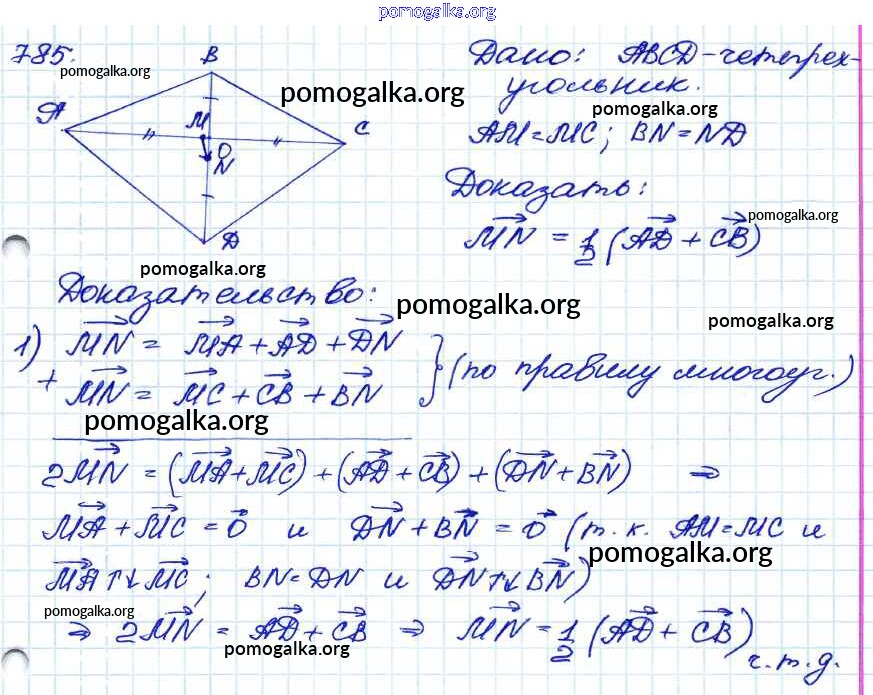 pomogalka.org
785.
pomogalka.org
B
A
M
O
N
C
D
pomogalka.org
Дано: ABCD – четырех-
угольник.
pomogalka.org
AM = MC; BN = ND
Доказать:
pomogalka.org
MN = 1/2 (AD + CB)
pomogalka.org
Доказательство:
pomogalka.org
pomogalka.org
1) MN = MA + AD + DN
+ MN = MC + CB + BN } (по правилу многоуг.)
pomogalka.org
2MN = (MA + MC) + (AD + CB) + (DN + BN) ⇒
MA + MC = 0 и DN + BN = 0 (т.к. AM = MC и
pomogalka.org
MA ↑↓ MC; BN = DN и DN ↑↓ BN)
pomogalka.org
⇒ 2MN = AD + CB ⇒ MN = 1/2 (AD + CB)
pomogalka.org
ч.т.д.